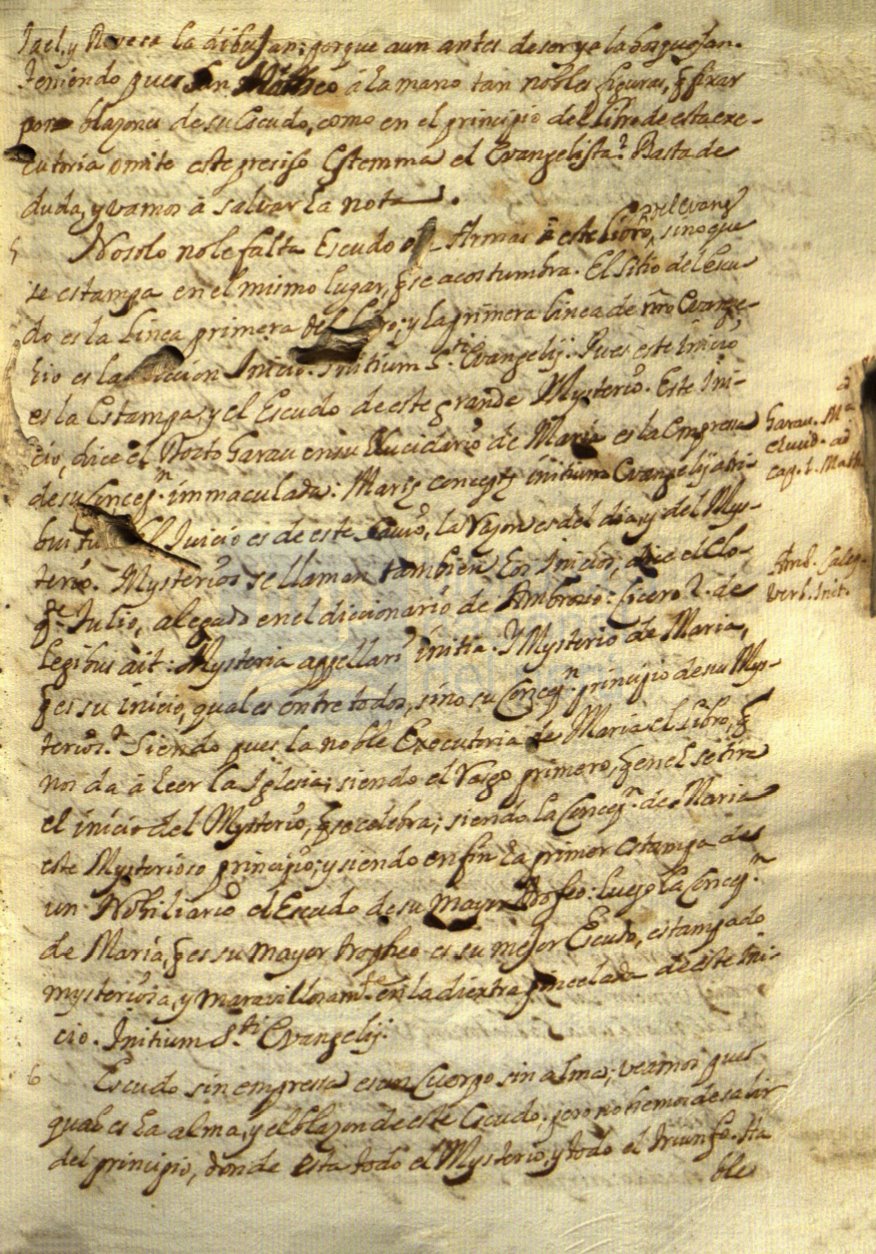 Jael, y la dibujan; porque aun antes de ser ya la bosquejan.
Teniendo pues San Matheo â la mano tan nobles figuras, q̃ fixar
por blazones de su Escudo, como en el principio del Libro de esta exe-
cutoria omite este preciso Estemma el Evangelista? Basta de
duda, y vamos â salvar la nota.
5 No solo no le falta Escudo de Armas â este libro del Evang, sino que
se estampa en el mismo lugar, q̃ se acostumbra. El sitio del Escu-
do es la linea primera del ; y la primera linea de nr̃o Evange-
lio es la Inicio. Initium S.ti Evangelij. Pues este Inicio
es la Estampa, y el Escudo de este grande Mysterio. Este Ini-
cio, dice el Docto Garau en su Elucidario de Maria es la Empresa
de su Concepn immaculada: Mariȩ initium Evangelij atri-
buitur el Juicio es de este Savio, la razon es del dia, y del Mys-
terio. Mysterios se llaman tambien los Inicios, dice el Elo-
qte Julio, alegado en el diccionario de Ambrosio: Cicero 2. de
legibus ait: Mysteria appellari initia. Y Mysterio de Maria,
q̃ es su inicio, qual es entre todos, sino su Concepn principio de sus Mys-
terios? Siendo pues la noble Executoria de Maria el Libro, q̃
nos da â leer la Iglesia; siendo el rasgo primero, q̃ en el se tira
el inicio del Mysterio, q̃ se celebra; siendo la Concepn de Maria
este Mysterioso principio; y siendo en fin la primer estampa de
un Nobiliario el Escudo de su mayor trofeo: luego la Concepn
de Maria, q̃ es su mayor tropheo es su mejor Escudo, estampado
mysteriosa, y maravillosamte en la diextra pincelada de este Ini-
cio. Initium S.ti Evangelij.
6 Escudo sin empressa es un Cuerpo sin alma; veamos pues
qual es la alma, y el blazon de este Escudo; pero no hemos de salir
del principio, donde esta todo el Mysterio, y todo el triunfo. Ha
ble
Garau. Ma
elucid. ad
cap. 1. Math
Amb. Calep.
verb. Init.